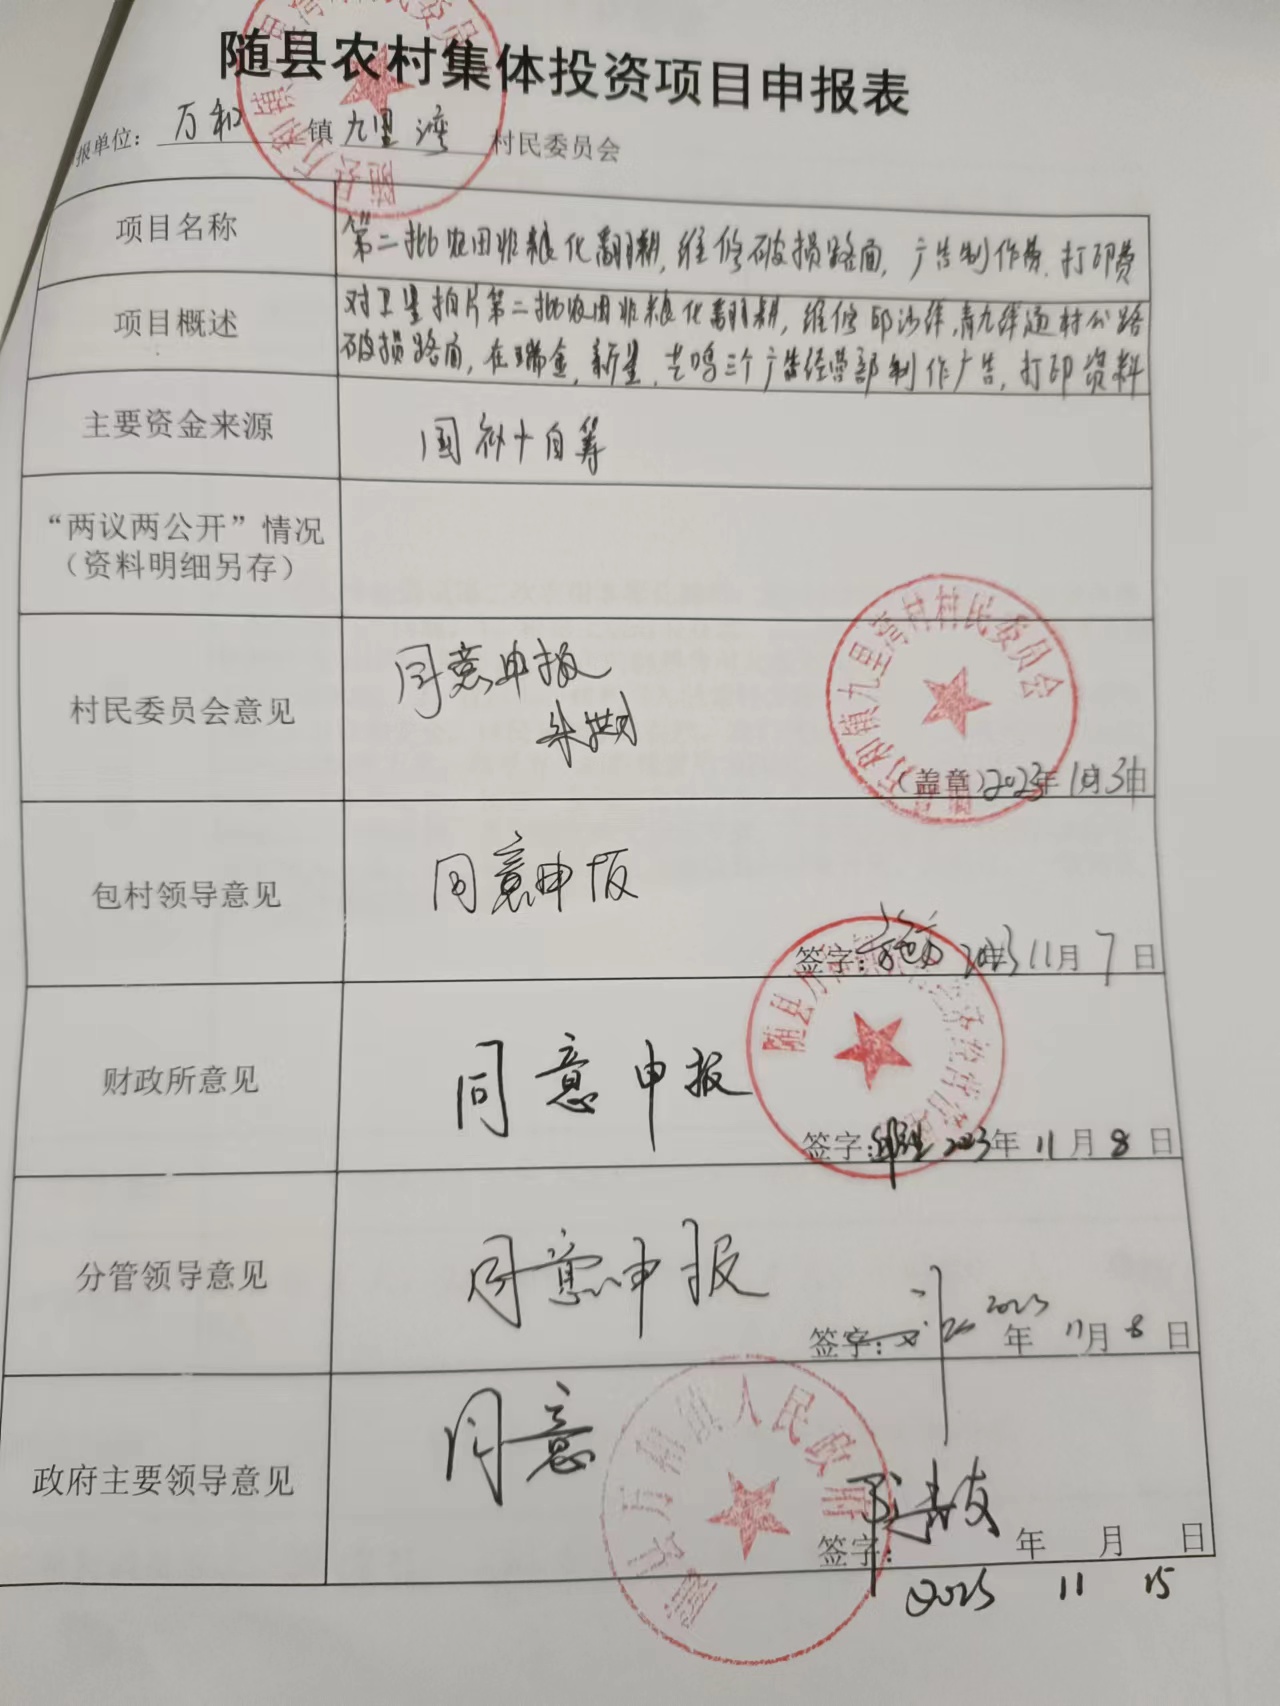 随县农村集体投资项目申报表
报单位： 万和 镇 九里湾 村民委员会
项目名称
第二批农田非粮化翻耕，维修破损路面，广告制作费，打印费
项目概述
对卫星拍片第二批农田非粮化翻耕，维修邱沙线，青九线通村公路
破损路面，在瑞金，新星，艺鸣三个广告经营部制作广告，打印资料
主要资金来源
国补+自筹
“两议两公开”情况
（资料明细另存）
村民委员会意见
同意申报
九里湾村村民委员会
（盖章）2023年10月31日
包村领导意见
同意申报
签字： 2023 11月7日
财政所意见
同意申报
签字： 2023年11月8日
分管领导意见
同意申报
签字： 2023年11月8日
政府主要领导意见
同意
万和镇人民政府
签字： 年 月 日
2023 11 15